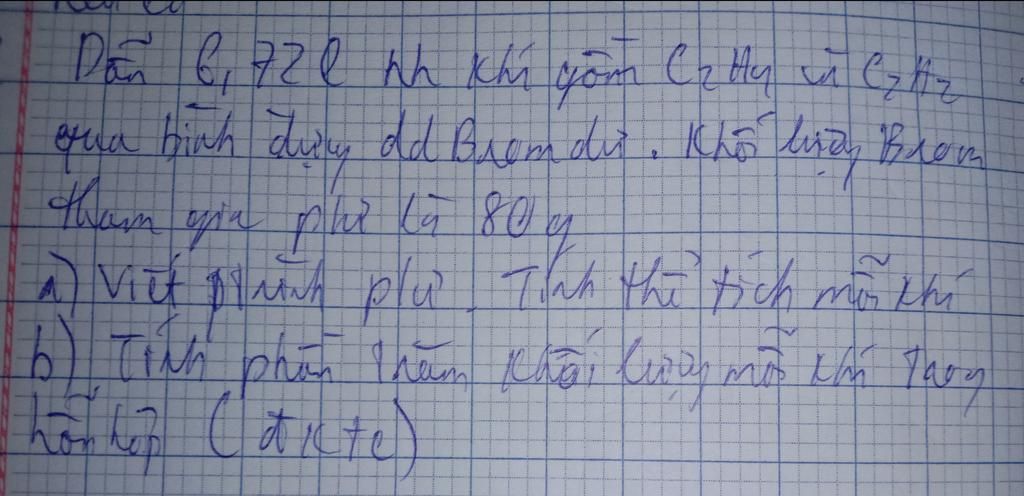 Dẫn 6,72l hh khí gồm C2H4 và C2H2
qua bình đựng dd Brom dư. Khối lượng Brom
tham gia phư là 80g
a) Viết ptrình phư. Tính thể tích mỗi khí
b) Tính phần trăm khối lượng mỗi khí trong
hỗn hợp (đktc)